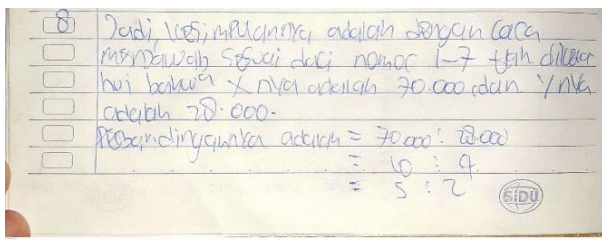 8 Jadi, kesimpulannya adalah dengan cara
menjawab sesuai dari nomor 1-7 tlah diketa
hui bahwa X nya adalah 70.000, dan Y nya
adalah 28.000.
Perbandingannya adalah = 70.000 : 28.000
= 10 : 4
= 5 : 2
SiDU